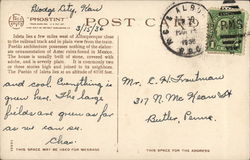 Dodge City, Kan
3/15/36
"PHOSTINT"
POST C
Isleta lies a few miles west of Albuquerque close
to the railroad track and in plain view from the train.
Pueblo architecture possesses nothing of the elabora-
tion of Aztec ruins found in Mexico.
The house is usually built of stone, covered with
adobe, and is severely plain. It is commonly two
or three stories high and joined to its neighbors.
The Pueblo of Isleta lies at an altitude of feet.
and cool. Everything is
green here. The large
fields are green as far
as we can see.
Chas
THIS SPACE MAY BE USED FOR MESSAGE
1936
Mr. E. H. Troutman
317 N. Mc Kean St
Butler, Penna.
THIS SPACE FOR ADDRESS ONLY